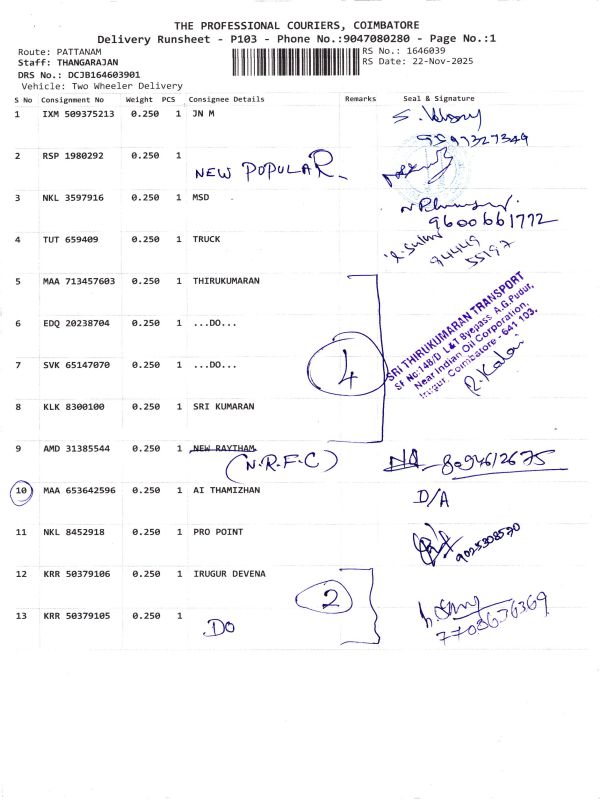 THE PROFESSIONAL COURIERS, COIMBATORE
Delivery Runsheet - P103 - Phone No.:9047080280 - Page No.:1
Route: PATTANAM RS No.: 1646039
Staff: THANGARAJAN RS Date: 22-Nov-2025
DRS No.: DCJB164603901
Vehicle: Two Wheeler Delivery
S No Consignment No Weight PCS Consignee Details Remarks Seal & Signature
1 IXM 509375213 0.250 1 JN M
2 RSP 1980292 0.250 1 NEW POPULAR
3 NKL 3597916 0.250 1 MSD
9600661772
4 TUT 659409 0.250 1 TRUCK
94449
55197
5 MAA 713457603 0.250 1 THIRUKUMARAN
6 EDQ 20238704 0.250 1 ...DO...
7 SVK 65147070 0.250 1 ...DO...
4
SRI THIRUKUMARAN TRANSPORT
SF No:148/D L&T Byepass A.G.Pudur,
Near Indian Oil Corporation,
Irugur, Coimbatore - 641 103.
R. Kalai
8 KLK 8300100 0.250 1 SRI KUMARAN
9 AMD 31385544 0.250 1 NEW RAYTHAM
(N.R.F.C) 8094612675
10 MAA 653642596 0.250 1 AI THAMIZHAN D/A
11 NKL 8452918 0.250 1 PRO POINT
9025308520
12 KRR 50379106 0.250 1 IRUGUR DEVENA
2
13 KRR 50379105 0.250 1 DO
7708636369